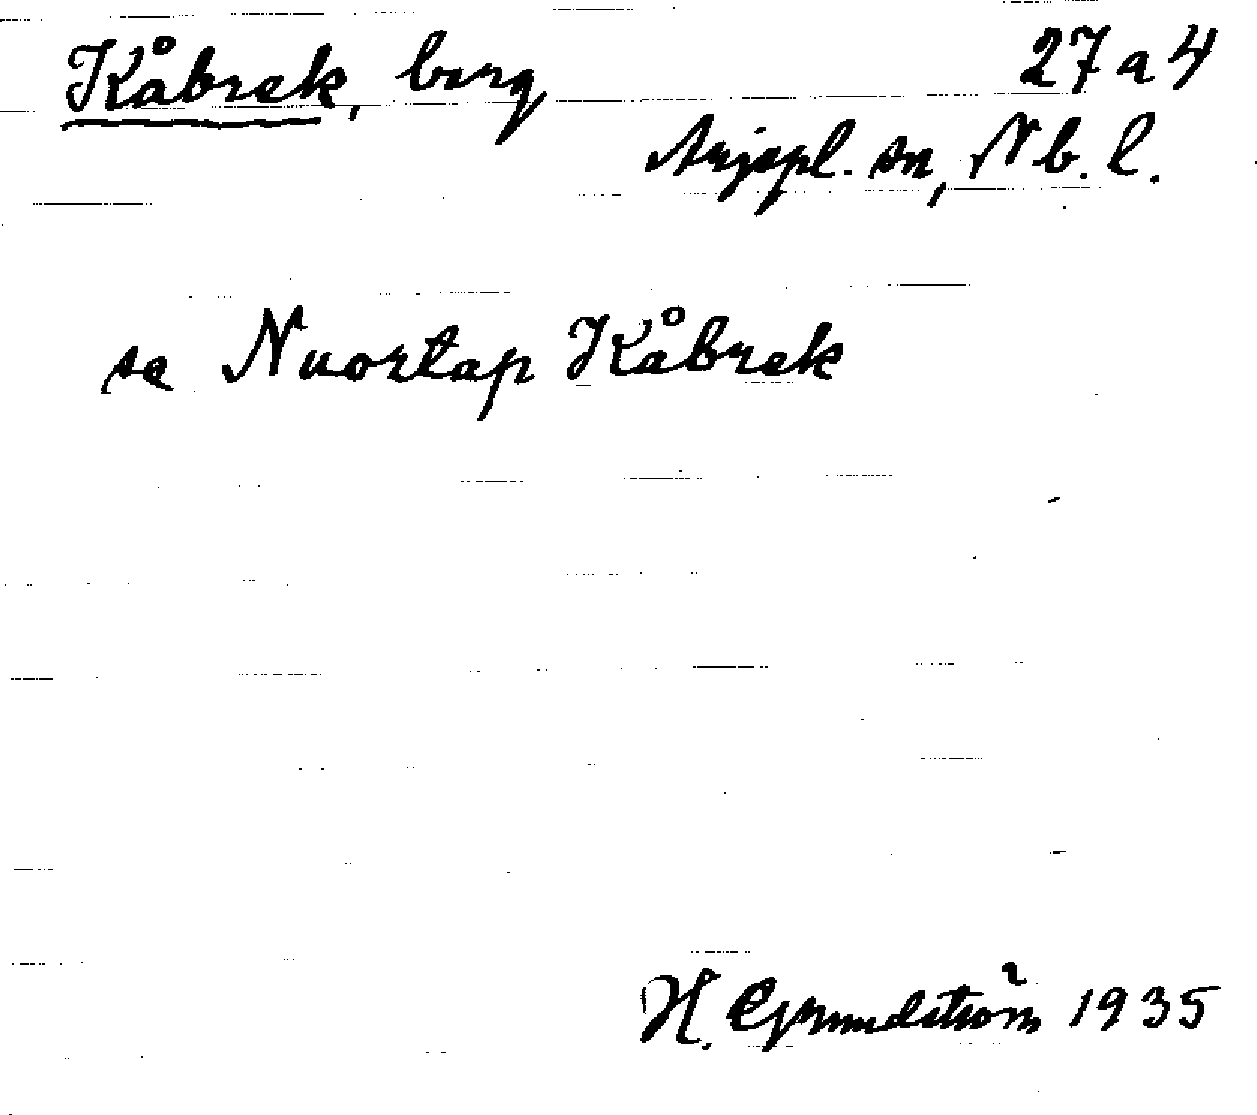 Kåbrek, berg 27 a 4
Arjepl. sn, Nb. l.
se Nuortap Kåbrek
H. Grundström 1935